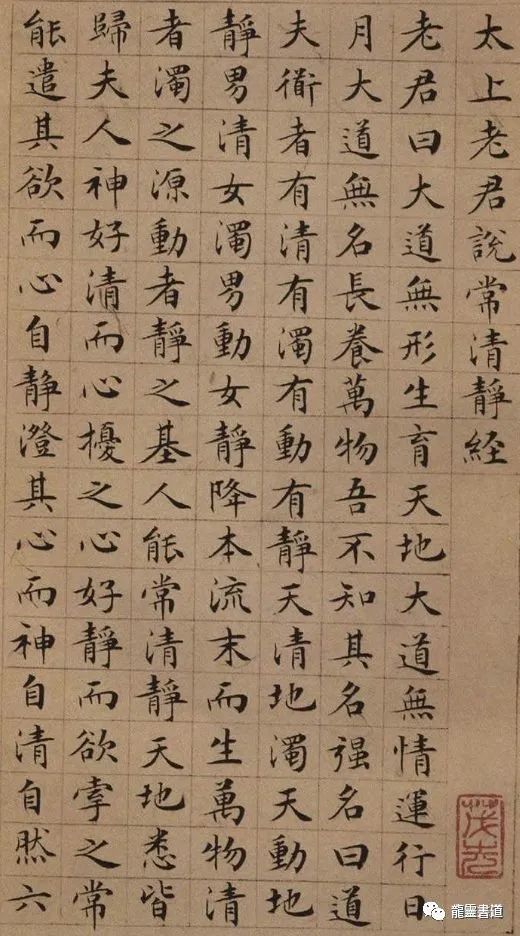 太上老君說常清靜経
老君曰大道無形生育天地大道無情運行日
月大道無名長養萬物吾不知其名强名曰道
夫衜者有清有濁有動有靜天清地濁天動地
靜男清女濁男動女靜降本流末而生萬物清
者濁之源動者靜之基人能常清靜天地悉皆
歸夫人神好清而心擾之心好靜而欲牽之常
能遣其欲而心自静澄其心而神自清自然六
龍靈書道